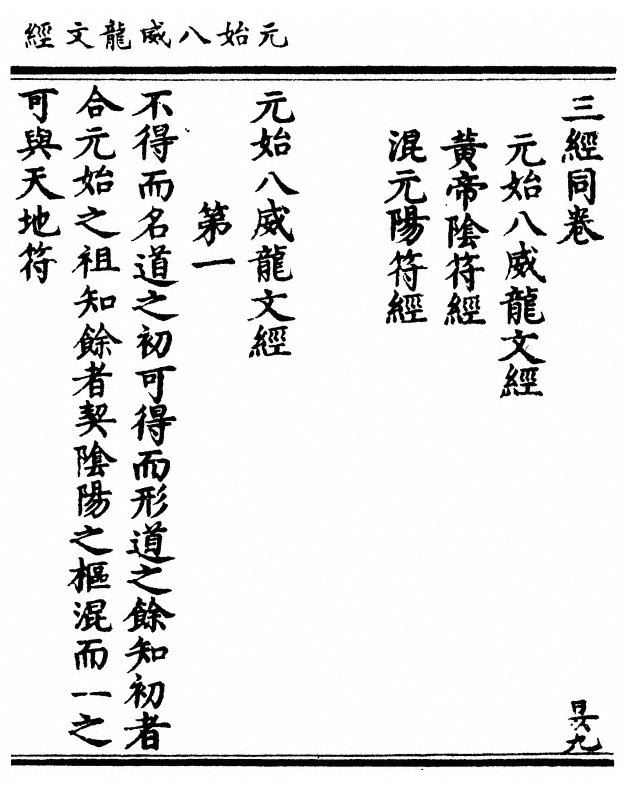 元始八威龍文經
三經同卷
元始八威龍文經
黃帝陰符經
混元陽符經
元始八威龍文經
第一
不得而名道之初可得而形道之餘知初者
合元始之祖知餘者契陰陽之樞混而一之
可與天地符
昃九